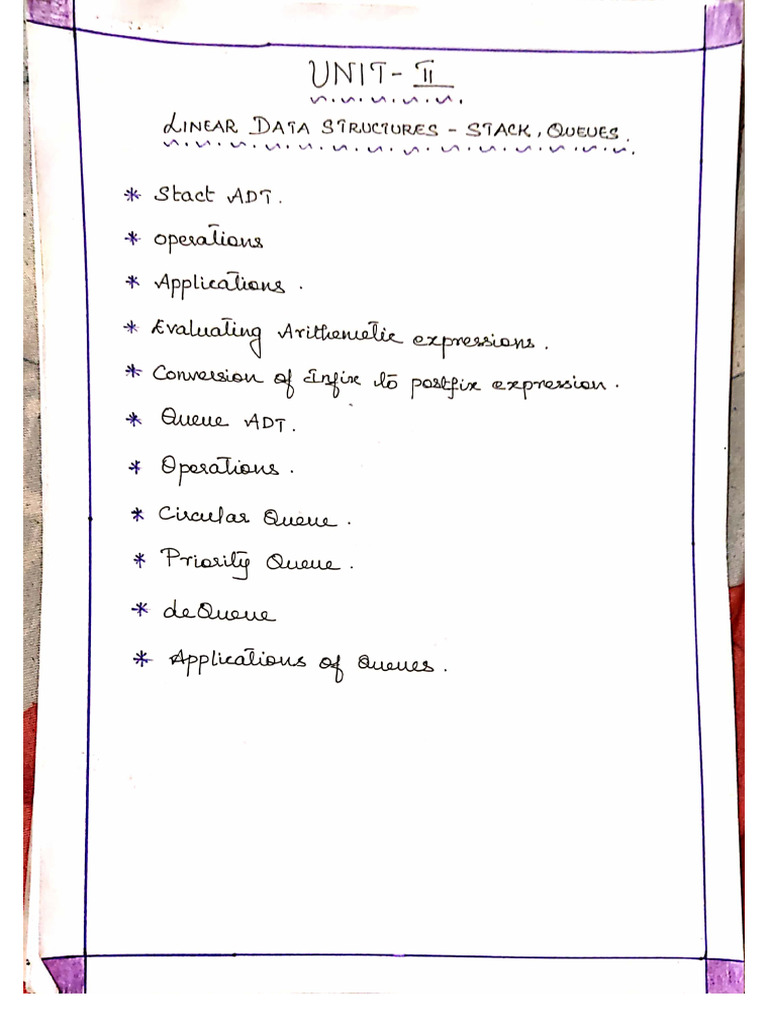 UNIT - II
LINEAR DATA STRUCTURES - STACK, QUEUES.
* Stact ADT.
* operations
* Applications.
* Evaluating Arithemetic expressions.
* Conversion of Infix to postfix expression.
* Queue ADT.
* Operations.
* Circular Queue.
* Priority Queue.
* deQueue
* Applications of Queues.